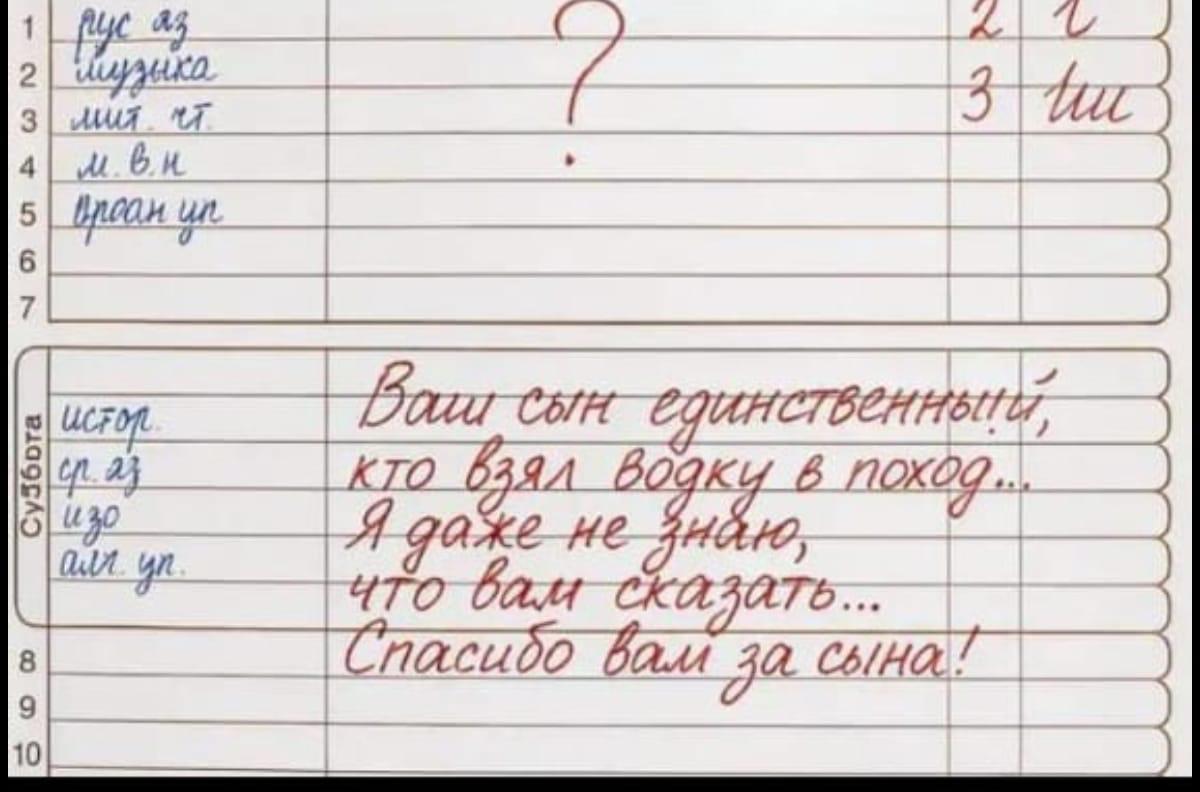 1 рус яз 2
2 музыка ?
3 лит. чт. 3
4 м.в.н
5 уп
6
7
Суббота
истор.
ср. яз
изо
алг. уп.
Ваш сын единственный,
кто взял водку в поход...
Я даже не знаю,
что вам сказать...
Спасибо вам за сына!
8
9
10